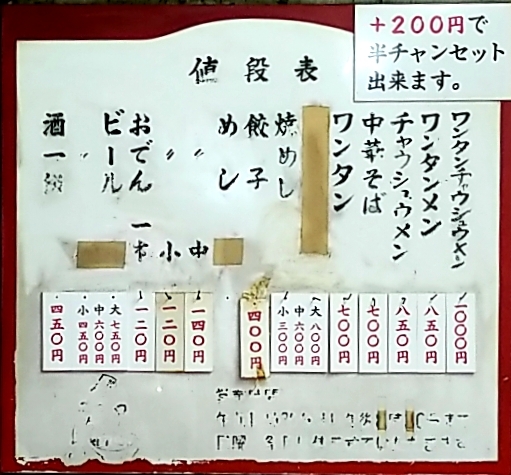 +200円で
半チャンセット
出来ます。
値段表
ワンタンチャウシュウメン
ワンタンメン
チャウシュウメン
中華そば
ワンタン
焼めし
餃子
めし
〃 中
〃 小
おでん 一本
ビール
〃
酒一級
一000円
八五0円
八五0円
七00円
七00円
大八00円
中六00円
小三00円
四00円
一四0円
一二0円
一二0円
大七五0円
中六00円
小四五0円
四五0円